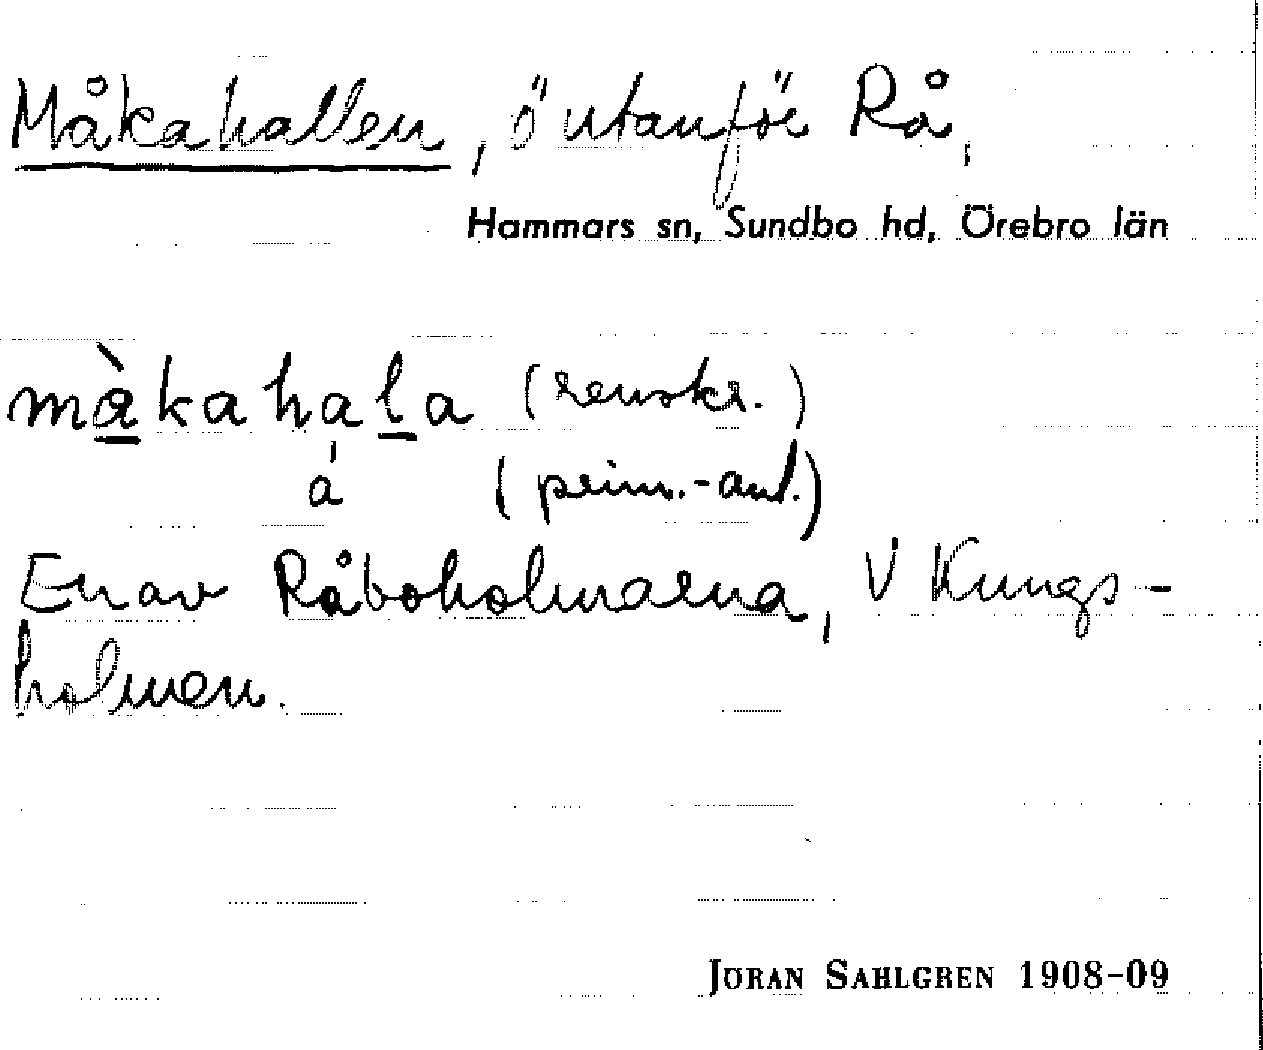 Måkahallen, ö utanför Rå,
Hammars sn, Sundbo hd, Örebro län
màkahala (renskr.)
á (prim.-ant.)
En av Råboholmarna, V Kungs-
holmen.
JÖRAN SAHLGREN 1908-09